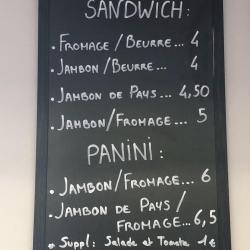 SANDWICH:
• FROMAGE/BEURRE... 4
• JAMBON/BEURRE... 4
• JAMBON DE PAYS... 4,50
• JAMBON/FROMAGE... 5
PANINI:
• JAMBON/FROMAGE... 6
• JAMBON DE PAYS/
FROMAGE... 6,5
* Suppl: Salade et Tomate 1€